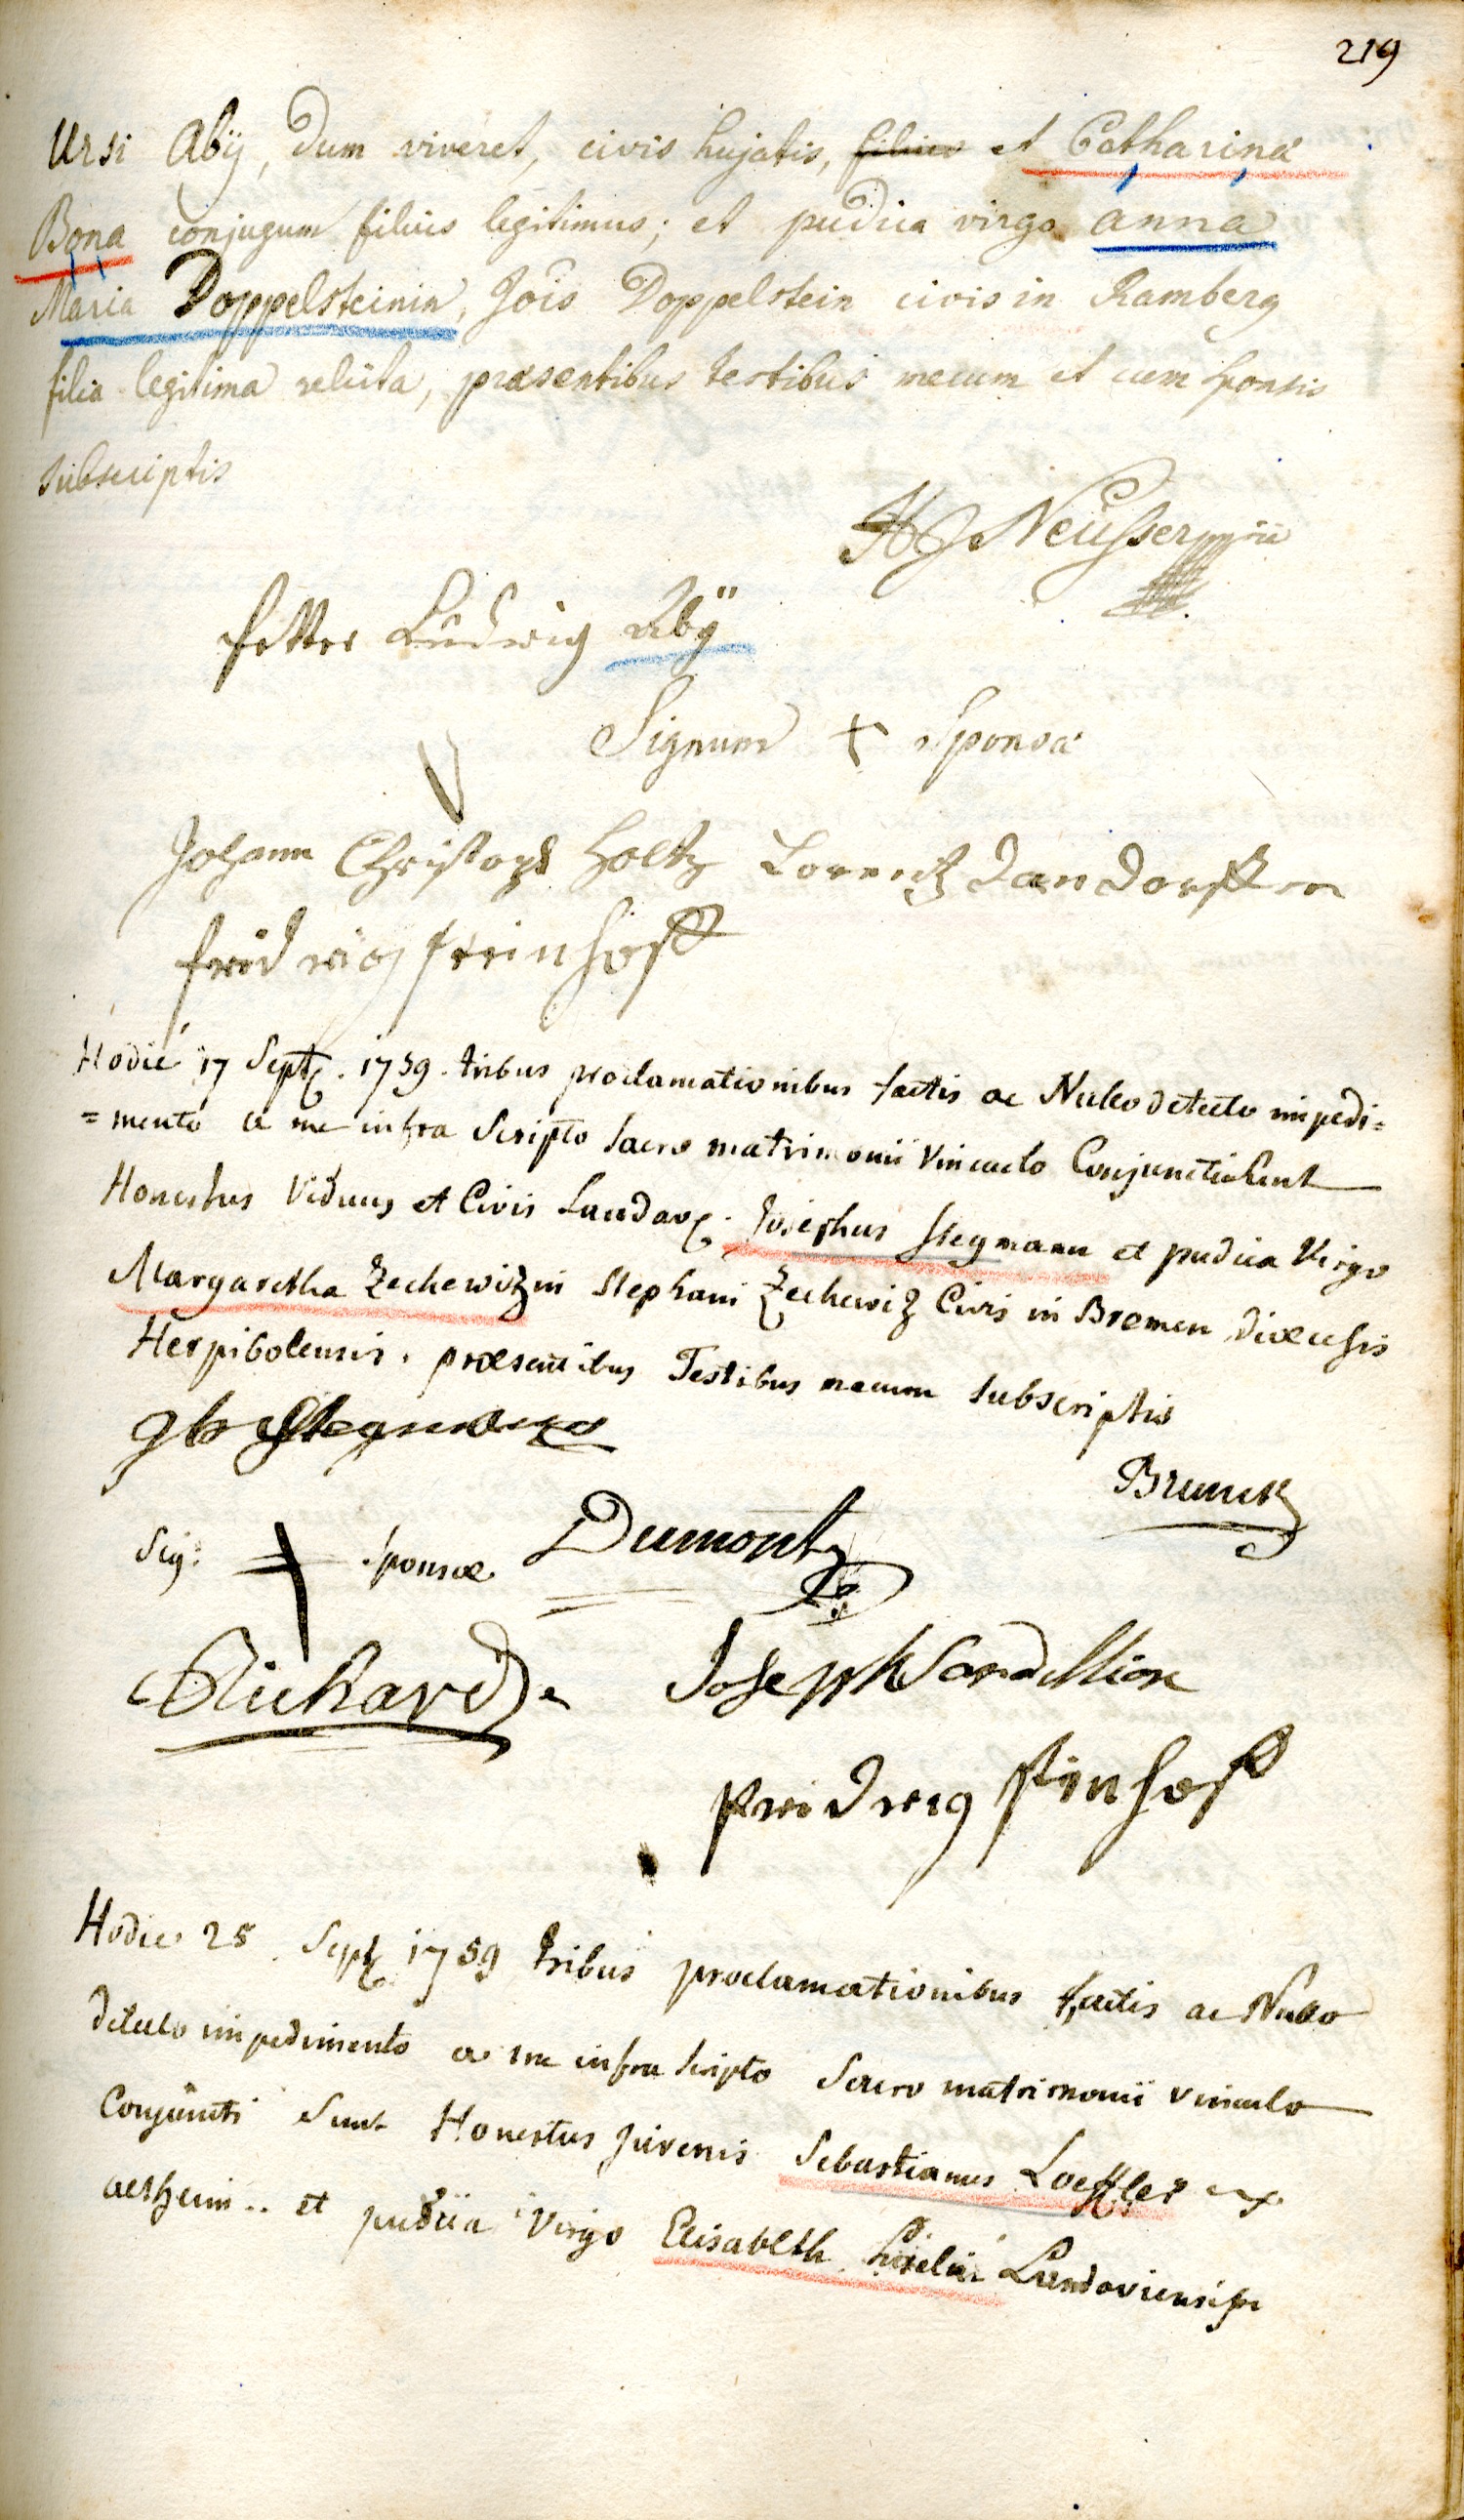 219
Ursi Abÿ, dum viveret, civis hujatis, filius et Catharinæ
Bona conjugum filius legitimus; et pudica virgo anna
Maria Doppelsteinin, Jois Doppelstein civis in Ramberg
filia legitima relicta, præsentibus testibus mecum et cum sponsis
subscriptis
Neüsser mpria
Petter Ludwig Abÿ
Signum + Sponsæ
Johann Christoph Holtz Lorentz
fridrig steinhoff
Hodie 17 Sept. 1759. tribus proclamationibus factis ac Nullo detecto impedi=
=mento a me infra Scripto sacro matrimonii Vinculo Conjuncti sunt
Honestus Viduus et Civis Landav. Josephus Stegmann et pudica Virgo
Margaretha Zechewitzin Stephani Zechewitz Civis in Bremen diœcesis
Herpibolensis. præsentibus Testibus mecum subscriptis
Stegmann
Brunck
Sig: + sponsæ Dumont
Richard Joseph
fridrig stinhoff
Hodie 25 Sept 1759 tribus proclamationibus factis ac Nullo
detecto impedimento a me infra scripto Sacro matrimonii vinculo
Conjuncti Sunt Honestus Juvenis Sebastianus Loeffler ex
et pudica Virgo Elisabeth Landaviensis